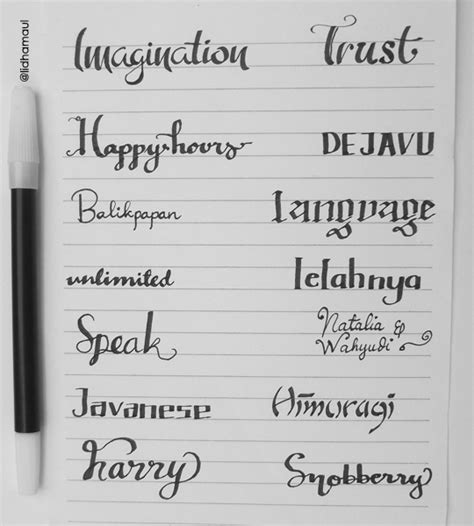 @lidhamaul
Imagination Trust
Happy hours DEJAVU
Balikpapan Language
unlimited lelahnya
Speak Natalia &
Wahyudi
Javanese Himuragi
harry Snobberry